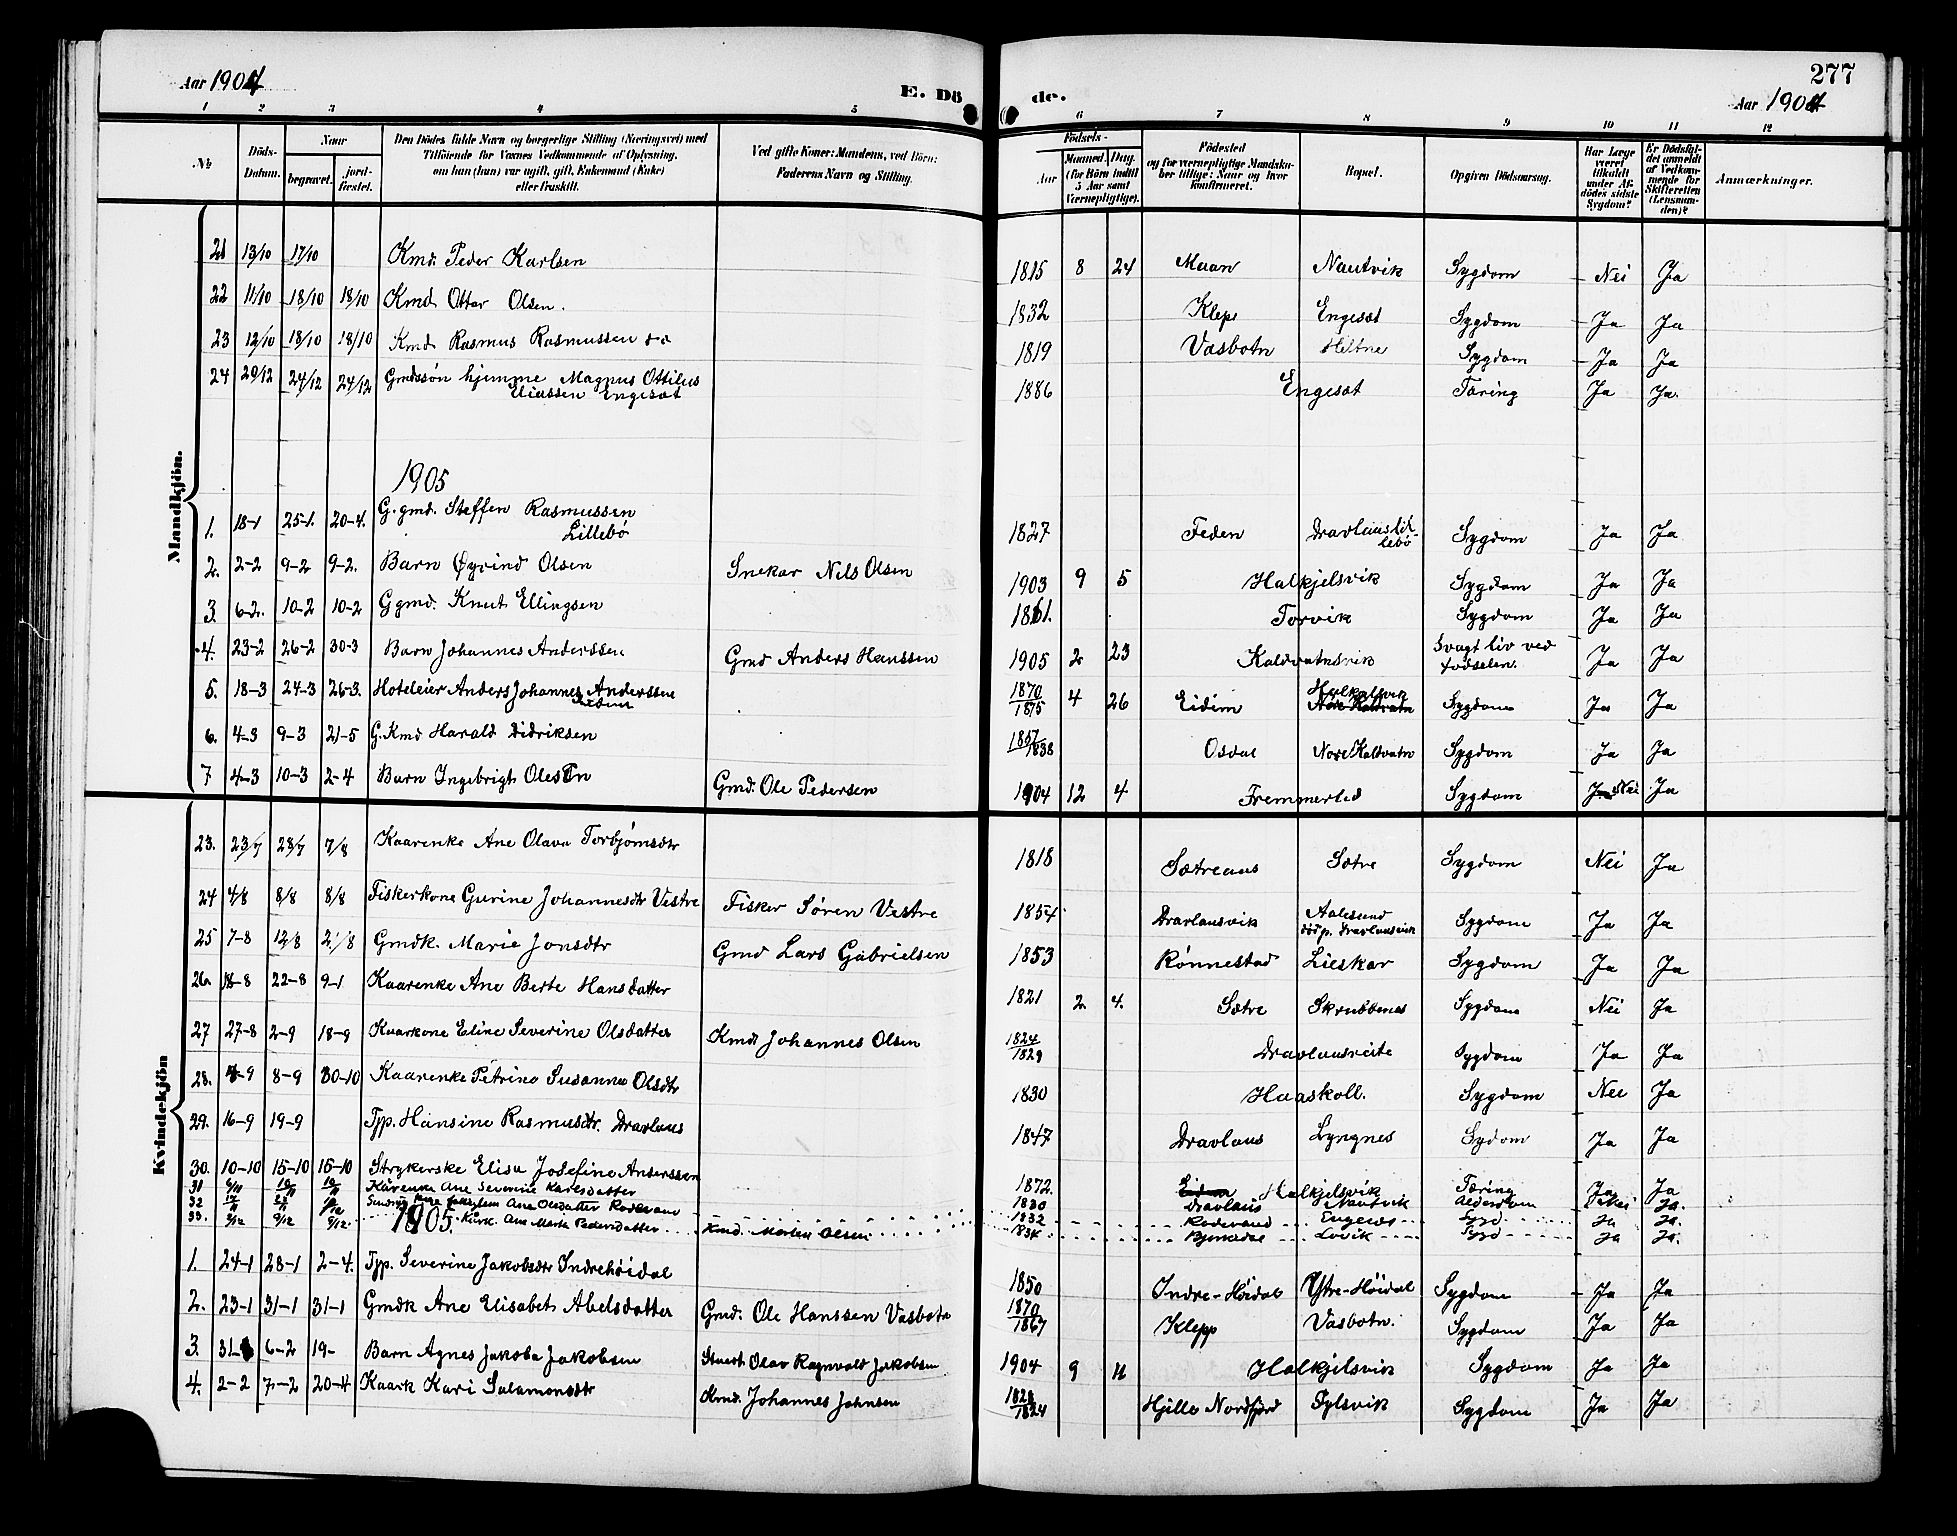 Aar 1904
E. Dö
de.
277
Aar 1904
1 2 3 4 5 6 7 8 9 10 11 12
№
Döds-Datum.
Naar
begravet.
jord-fæstet.
Den Dödes fulde Navn og borgerlige Stilling (Næringsvei) med Tilföiende for Voxnes Vedkommende af Oplysning, om han (hun) var ugift, gift, Enkemand (Enke) eller fraskilt.
Ved gifte Koner: Mandens, ved Börn: Faderens Navn og Stilling.
Födsels-
Aar
Maaned. Dag.
(for Börn indtil 5 Aar samt Værnepligtige).
Födested
og for værnepligtige Mandskaber tillige: Naar og hvor konfirmeret.
Bopæl.
Opgiven Dödsaarsag.
Har Læge været tilkaldt under Afdödes sidste Sygdom?
Er Dödsfaldet anmeldt af Vedkommende for Skifteretten (Lensmanden)?
Anmærkninger.
Mandkjön.
21 13/10 17/10 Kmd. Peder Karlsen 1815 8 24 Maan Nautvik Sygdom Nei Ja
22 11/10 18/10 18/10 Kmd Ottar Olsen. 1832 Klepe Engeset Sygdom Ja Ja
23 12/10 18/10 18/10 Kmd Rasmus Rasmussen 1819 Vasbotn Heltne Sygdom Ja Ja
24 29/12 24/12 24/12 Gmdssøn hjemme Magnus Ottilus Eliassen Engeset 1886 Engeset Tæring Ja Ja.
1905
1. 18-1 25-1. 20-4. G. gmd. Steffen Rasmussen Lillebø 1827 Feden Dravlauslillebø Sygdom Ja Ja
2. 2-2 9-2 9-2. Barn Øyvind Olsen Snekar Nils Olsen 1903 9 5 Halkjelsvik Sygdom Ja Ja
3. 6-2. 10-2 10-2 Ggmd. Knut Ellingsen 1861. Torvik Sygdom Ja Ja
4. 23-2 26-2 30-3 Barn Johannes Anderssen Gmd Anders Hanssen 1905 2 23 Kaldvatnsvik Svagt liv ved fødselen. Ja Ja
5. 18-3 24-3 26-3. Hoteleier Anders Johannes Anderssen 1870/1875 4 26 Eidim Halkjelsvik Sygdom Ja Ja
6. 4-3 9-3 21-5 G. Kmd Harald Didriksen 1857/1838 Osdal Nore Kaldvatn Sygdom Ja Ja
7 4-3 10-3 2-4 Barn Ingebrigt Olesen Gmd. Ole Pedersen 1904 12 4 Fremmerlid Sygdom Nei Ja
Kvindekjön
23. 23/7 28/7 7/8 Kaarenke Ane Olava Torbjørnsdtr 1818 Sætreaas Sætre Sygdom Nei Ja
24 4/8 8/8 8/8 Fiskerkone Gurine Johannesdtr Vestre Fisker Søren Vestre 1854 Dravlausvik Aalesund døp. Dravlausvik Sygdom Ja Ja
25 7-8 12/8 21/8 Gmdk. Marie Jonsdtr Gmd Lars Gabrielsen 1853 Rønnestad Lieskar Sygdom Ja Ja
26. 18-8 22-8 9-1 Kaarenke Ane Berte Hansdatter 1821 2 4. Sætre Skrubbenes Sygdom Nei Ja
27 27-8 2-9 18-9 Kaarkone Eline Severine Olsdatter Kmd Johannes Olsen 1824/1829 Dravlausreite Sygdom Ja Ja
28. 4-9 8-9 30-10 Kaarenke Petrine Susanne Olsdtr 1830 Haaskoll. Sygdom Nei Ja
29. 16-9 19-9 Tjp. Hansine Rasmusdtr. Dravlaus 1847 Dravlaus Lyngnes Sydom Ja Ja
30. 10-10 15-10 15-10 Strykerske Elisa Josefine Anderssen 1872. Halkjelsvik Tæring Ja Ja
31 Kårenke Ane Severine Karlsdatter 1830 Dravlaus Nautvik Alderdom Nei Ja.
32 Ane Olsdatter Rodevand 1832 Rodevand Engenes Sygd Ja Ja.
33. 5/12 9/12 9/12 Kårk. Ane Marta Pedersdatter Kmd. Morten Olsen 1834 Bjørkedal Lovik Sygd Ja Ja.
1905.
1. 24-1 28-1 2-4. Tjp. Severine Jakobsdtr Indrehöidal 1850 Indre-Höidal Ytre-Höidal Sygdom Ja Ja
2. 23-1 31-1 31-1 Gmdk Ane Elisabet Abelsdatter Gmd. Ole Hanssen Vasbotn 1870/1867 Klepp Vasbotn. Sygdom Ja Ja
3. 31-1 6-2 19- Barn Agnes Jakoba Jakobsen Stuert Olav Ragnvald Jakobsen 1904 9 11 Halkjelsvik Sygdom Ja Ja
4. 2-2 7-2 20-4 Kaark Kari Salamonsdtr Kmd. Johannes Johnsen 1828/1824 Hjelle Nordfjord Fylsvik Sygdom Ja Ja